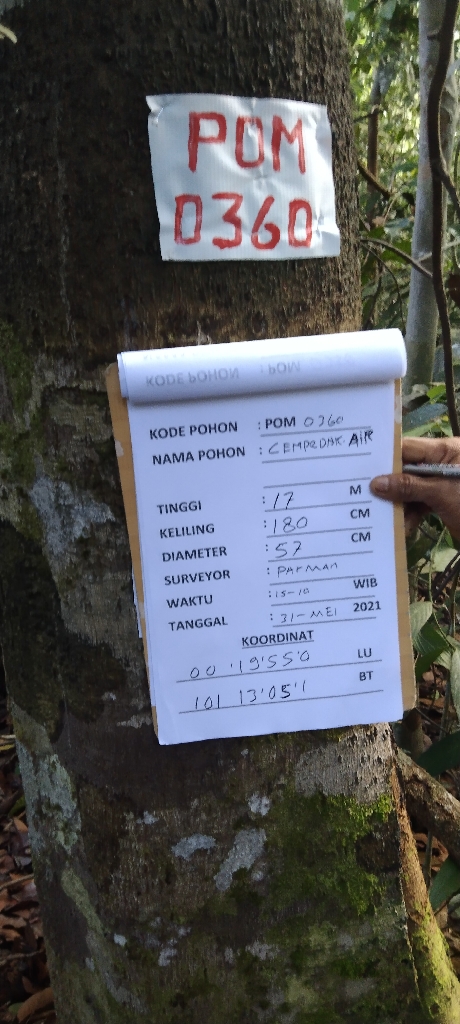 POM
0360
KODE POHON : POM 0360
NAMA POHON : CEMPEDAK AIR
TINGGI : 17 M
KELILING : 180 CM
DIAMETER : 57 CM
SURVEYOR : PARMAN
WAKTU : 15-10 WIB
TANGGAL : 31-MEI 2021
KOORDINAT
00 '19'55'0 LU
101 13'05'1 BT